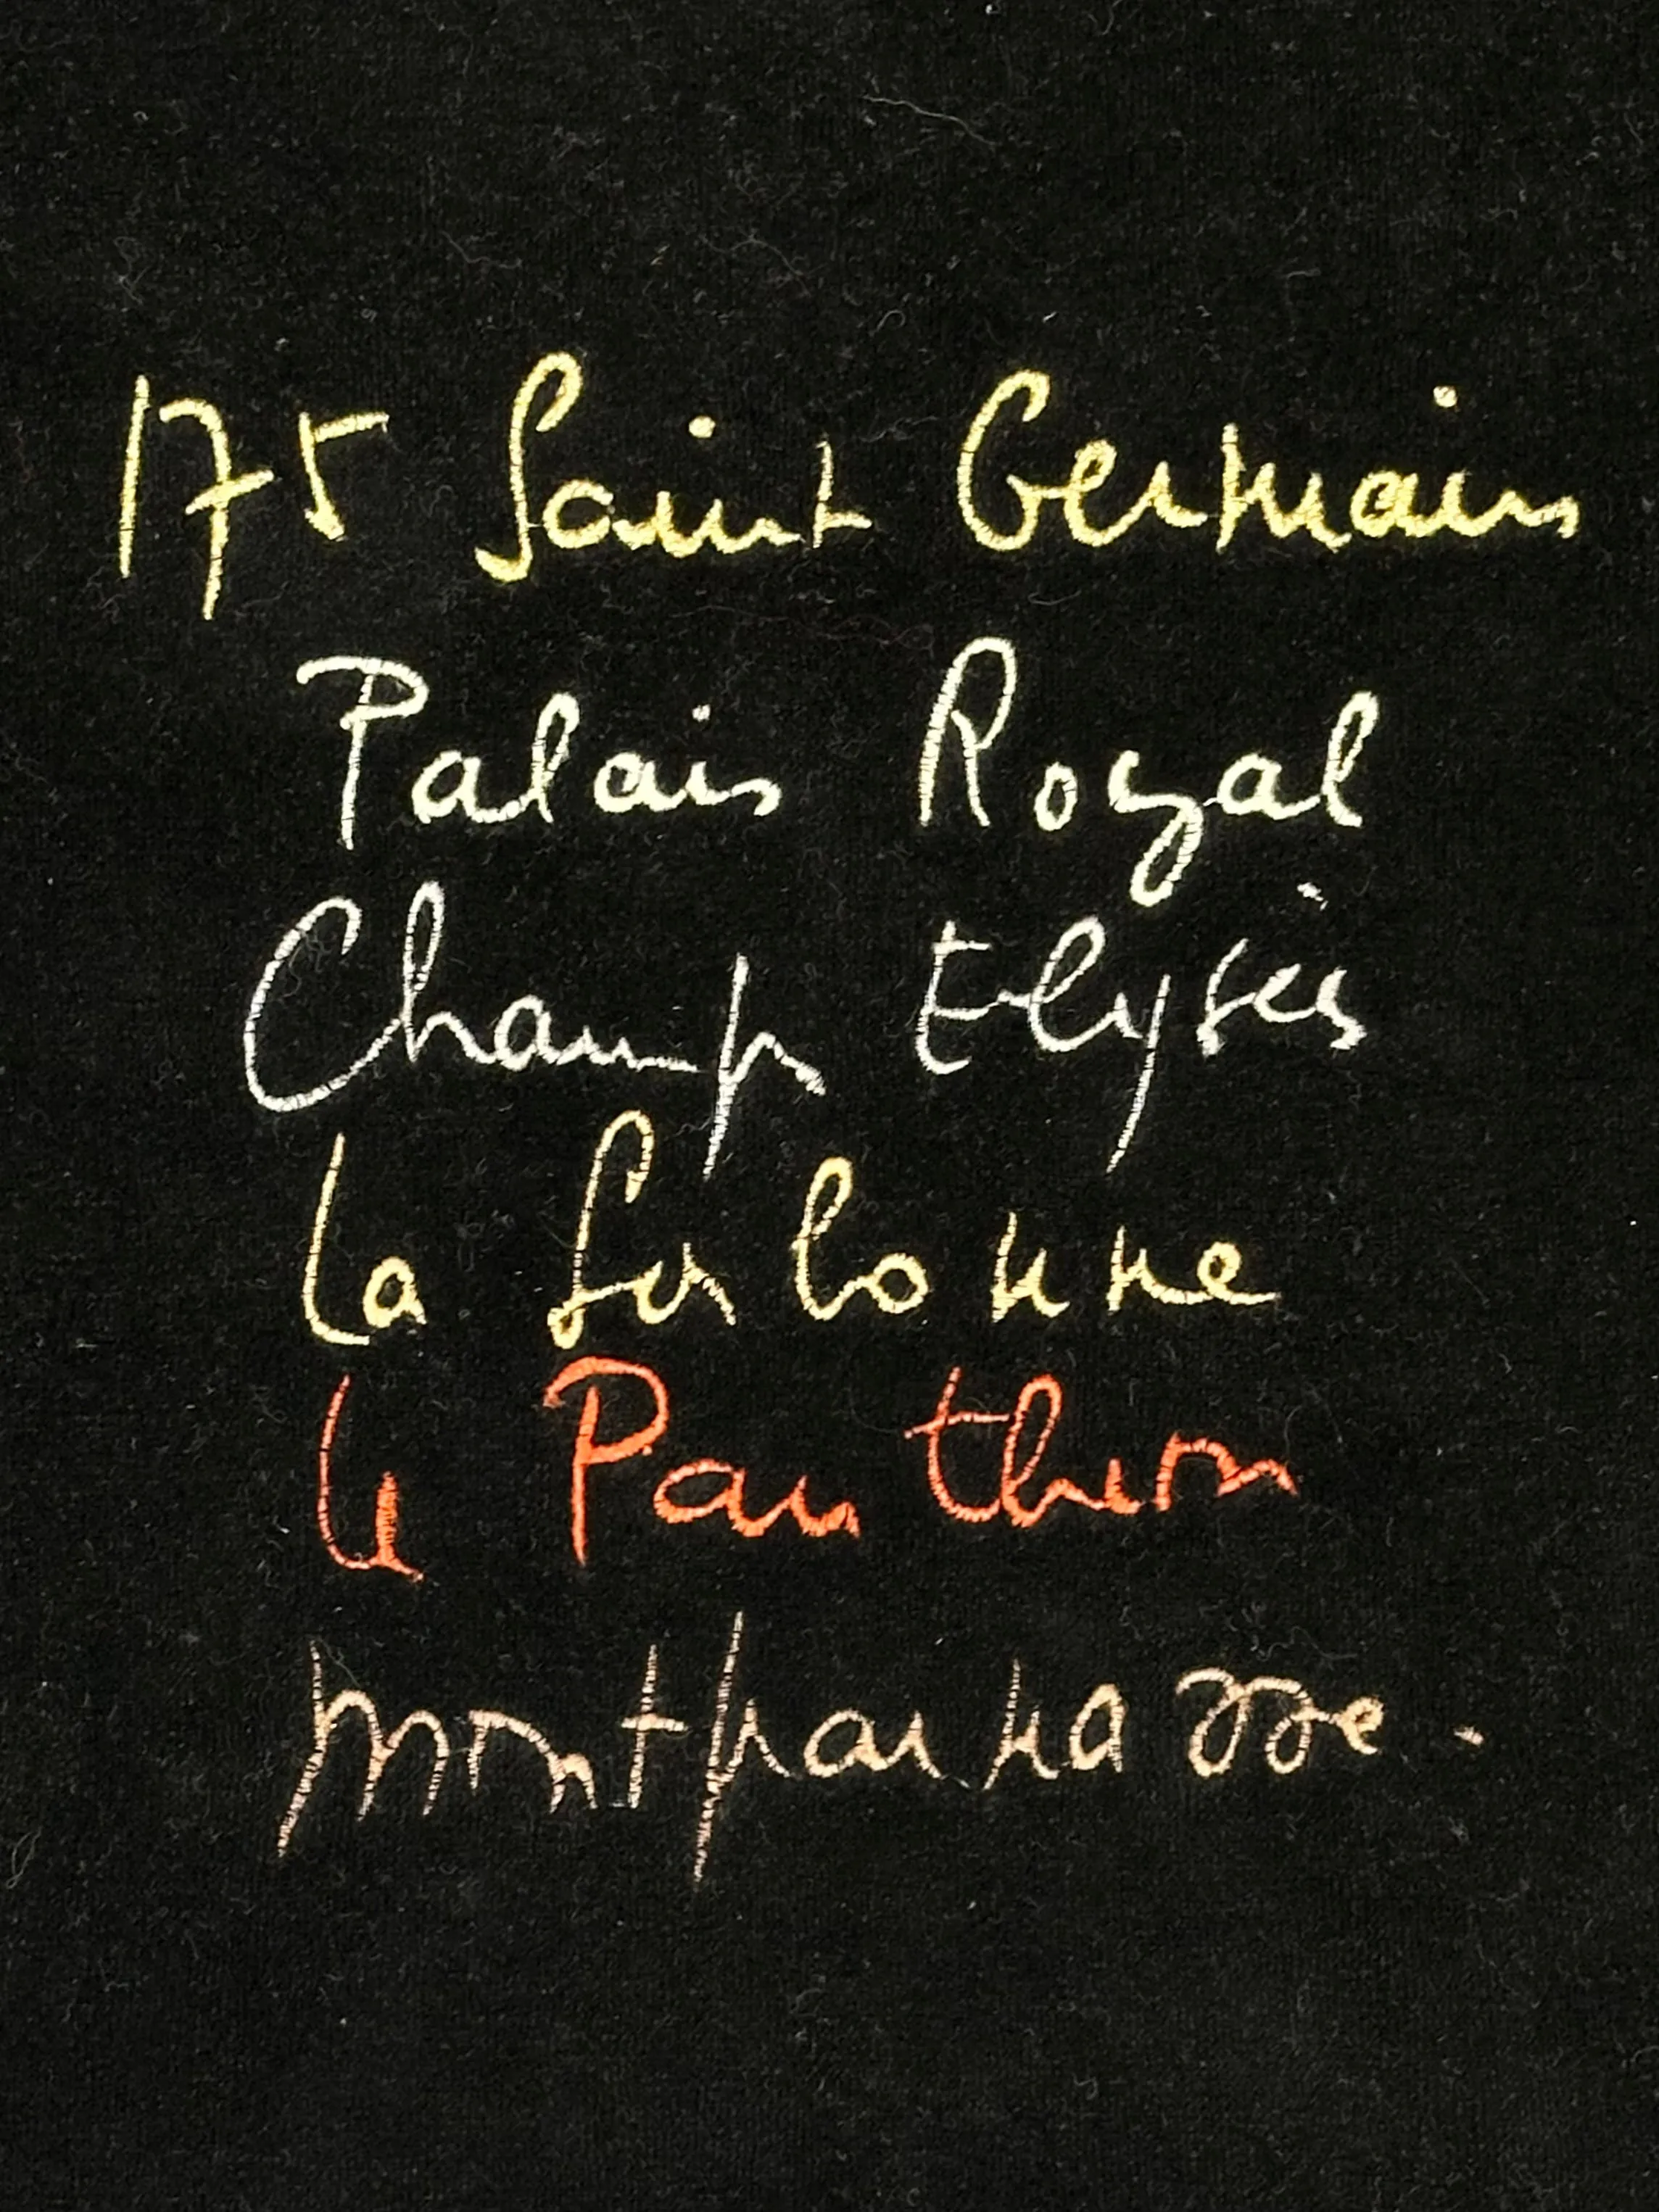 175 Saint Germain
Palais Royal
Champs Elysées
La Sorbonne
Le Pantheon
montparnasse.